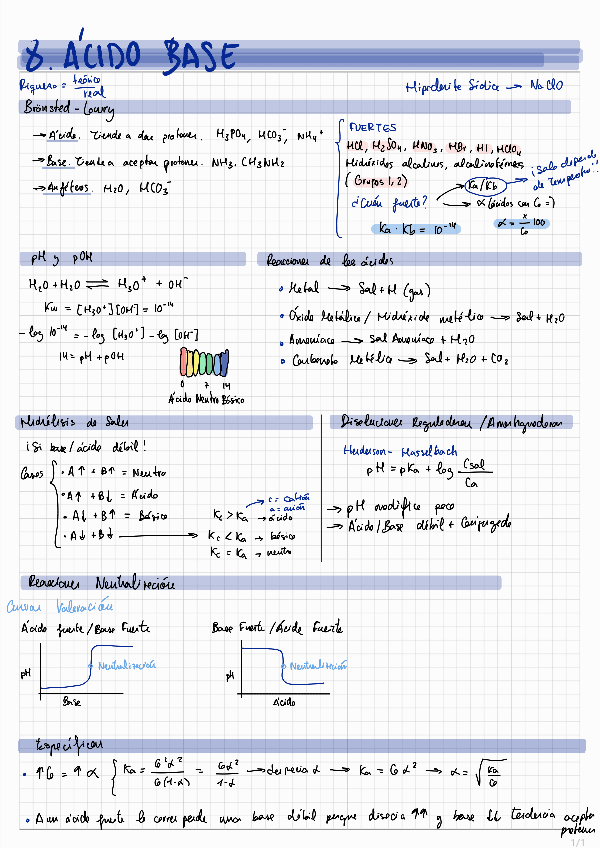 8. ÁCIDO BASE
Riqueza = teórico / real
Hipoclorito Sódico → NaClO
Brönsted-Lowry
→ Ácido. Tiende a dar protones. H₃PO₄, HCO₃⁻, NH₄⁺
→ Base. Tiende a aceptar protones. NH₃, CH₃NH₂
→ Anfóteros. H₂O, HCO₃⁻
FUERTES
HCl, H₂SO₄, HNO₃, HBr, HI, HClO₄
Hidróxidos alcalinos, alcalinotérreos
(Grupos 1, 2)
¿Cuán fuerte?
Ka/Kb
¡Solo depende de temperatura!!
α (ácidos con C₀ =)
Ka · Kb = 10⁻¹⁴
α = x/C₀ · 100
pH y pOH
H₂O + H₂O ⇌ H₃O⁺ + OH⁻
Kw = [H₃O⁺][OH⁻] = 10⁻¹⁴
-log 10⁻¹⁴ = -log [H₃O⁺] - log [OH⁻]
14 = pH + pOH
0 7 14
Ácido Neutro Básico
Reacciones de los ácidos
• Metal → Sal + H (gas)
• Óxido Metálico / Hidróxido metálico → Sal + H₂O
• Amoníaco → Sal Amoníaco + H₂O
• Carbonato Metálico → Sal + H₂O + CO₂
Hidrólisis de Sales
¡Si base/ácido débil!
Casos
• A↑ + B↑ = Neutro
• A↑ + B↓ = Ácido
• A↓ + B↑ = Básico
• A↓ + B↓ →
c = catión
a = anión
Kc > Ka → ácido
Kc < Ka → básico
Kc = Ka → neutro
Disoluciones Reguladoras / Amortiguadoras
Henderson-Hasselbach
pH = pKa + log Csal / Ca
→ pH modifica poco
→ Ácido/Base débil + Conjugado
Reacciones Neutralización
Curvas Valoración
Ácido fuerte / Base Fuerte
pH
Neutralización
Base
Base Fuerte / Ácido Fuerte
pH
Neutralización
Ácido
Específicas
• ↑C₀ = ↑α { Ka = C₀²α² / C₀(1-α) = C₀α² / 1-α → desprecia α → Ka = C₀α² → α = √(Ka/C₀)
• A un ácido fuerte le corresponde una base débil porque disocia ↑↑ y base ↓↓ tendencia aceptar
protones
1/1